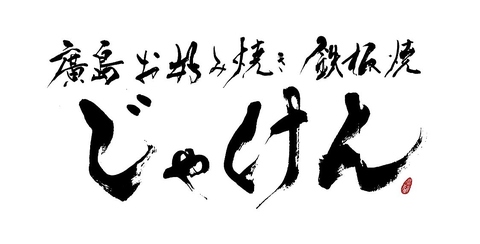 廣島お好み焼き 鉄板焼
じゃけん